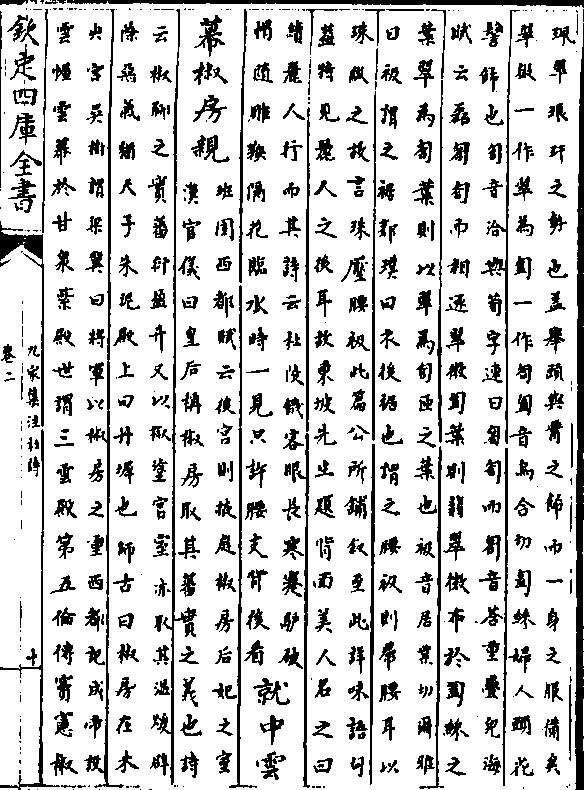 珮單珢玕之勢也蓋舉頭與背之飾而一身之服備矣
翠微一作翠為㔩一作㔩㔩音烏合切㔩綵婦人頭花
髻飾也㔩音洽與匌字連曰匌㔩而㔩音荅重疊皃海
賦云磊匒㔩而相逐翠微㔩葉則翡翠微布於㔩綵之
葉翠為㔩葉則以翠為㔩匝之葉也被音居業切爾雅
曰被謂之裾郭璞曰衣後裾也謂之腰衱則帶腰耳以
珠綴之故言珠壓腰衱此篇公所鋪敘至此詳味語句
蓋特見麗人之後耳故東坡先生題背面美人名之曰
續麗人行而其詩云杜陵饑客眼長寒蹇驢破
帽隨雕鞍隔花臨水時一見只許腰支背後看就中雲
幕椒房親班固西都賦云後宮則掖庭椒房后妃之室
漢官儀曰皇后稱椒房取其蕃實之義也詩
云椒聊之實蕃衍盈升又以椒塗宮室亦取其溫煖辟
除惡氣猶天子朱泥殿上曰丹墀也師古曰椒房在未
央宮吳樹謂梁冀曰將軍以椒房之重西都記成帝設
雲幄雲幕於甘泉紫殿世謂三雲殿第五倫傳竇憲椒
欽定四庫全書
九家集注杜詩
卷二
十